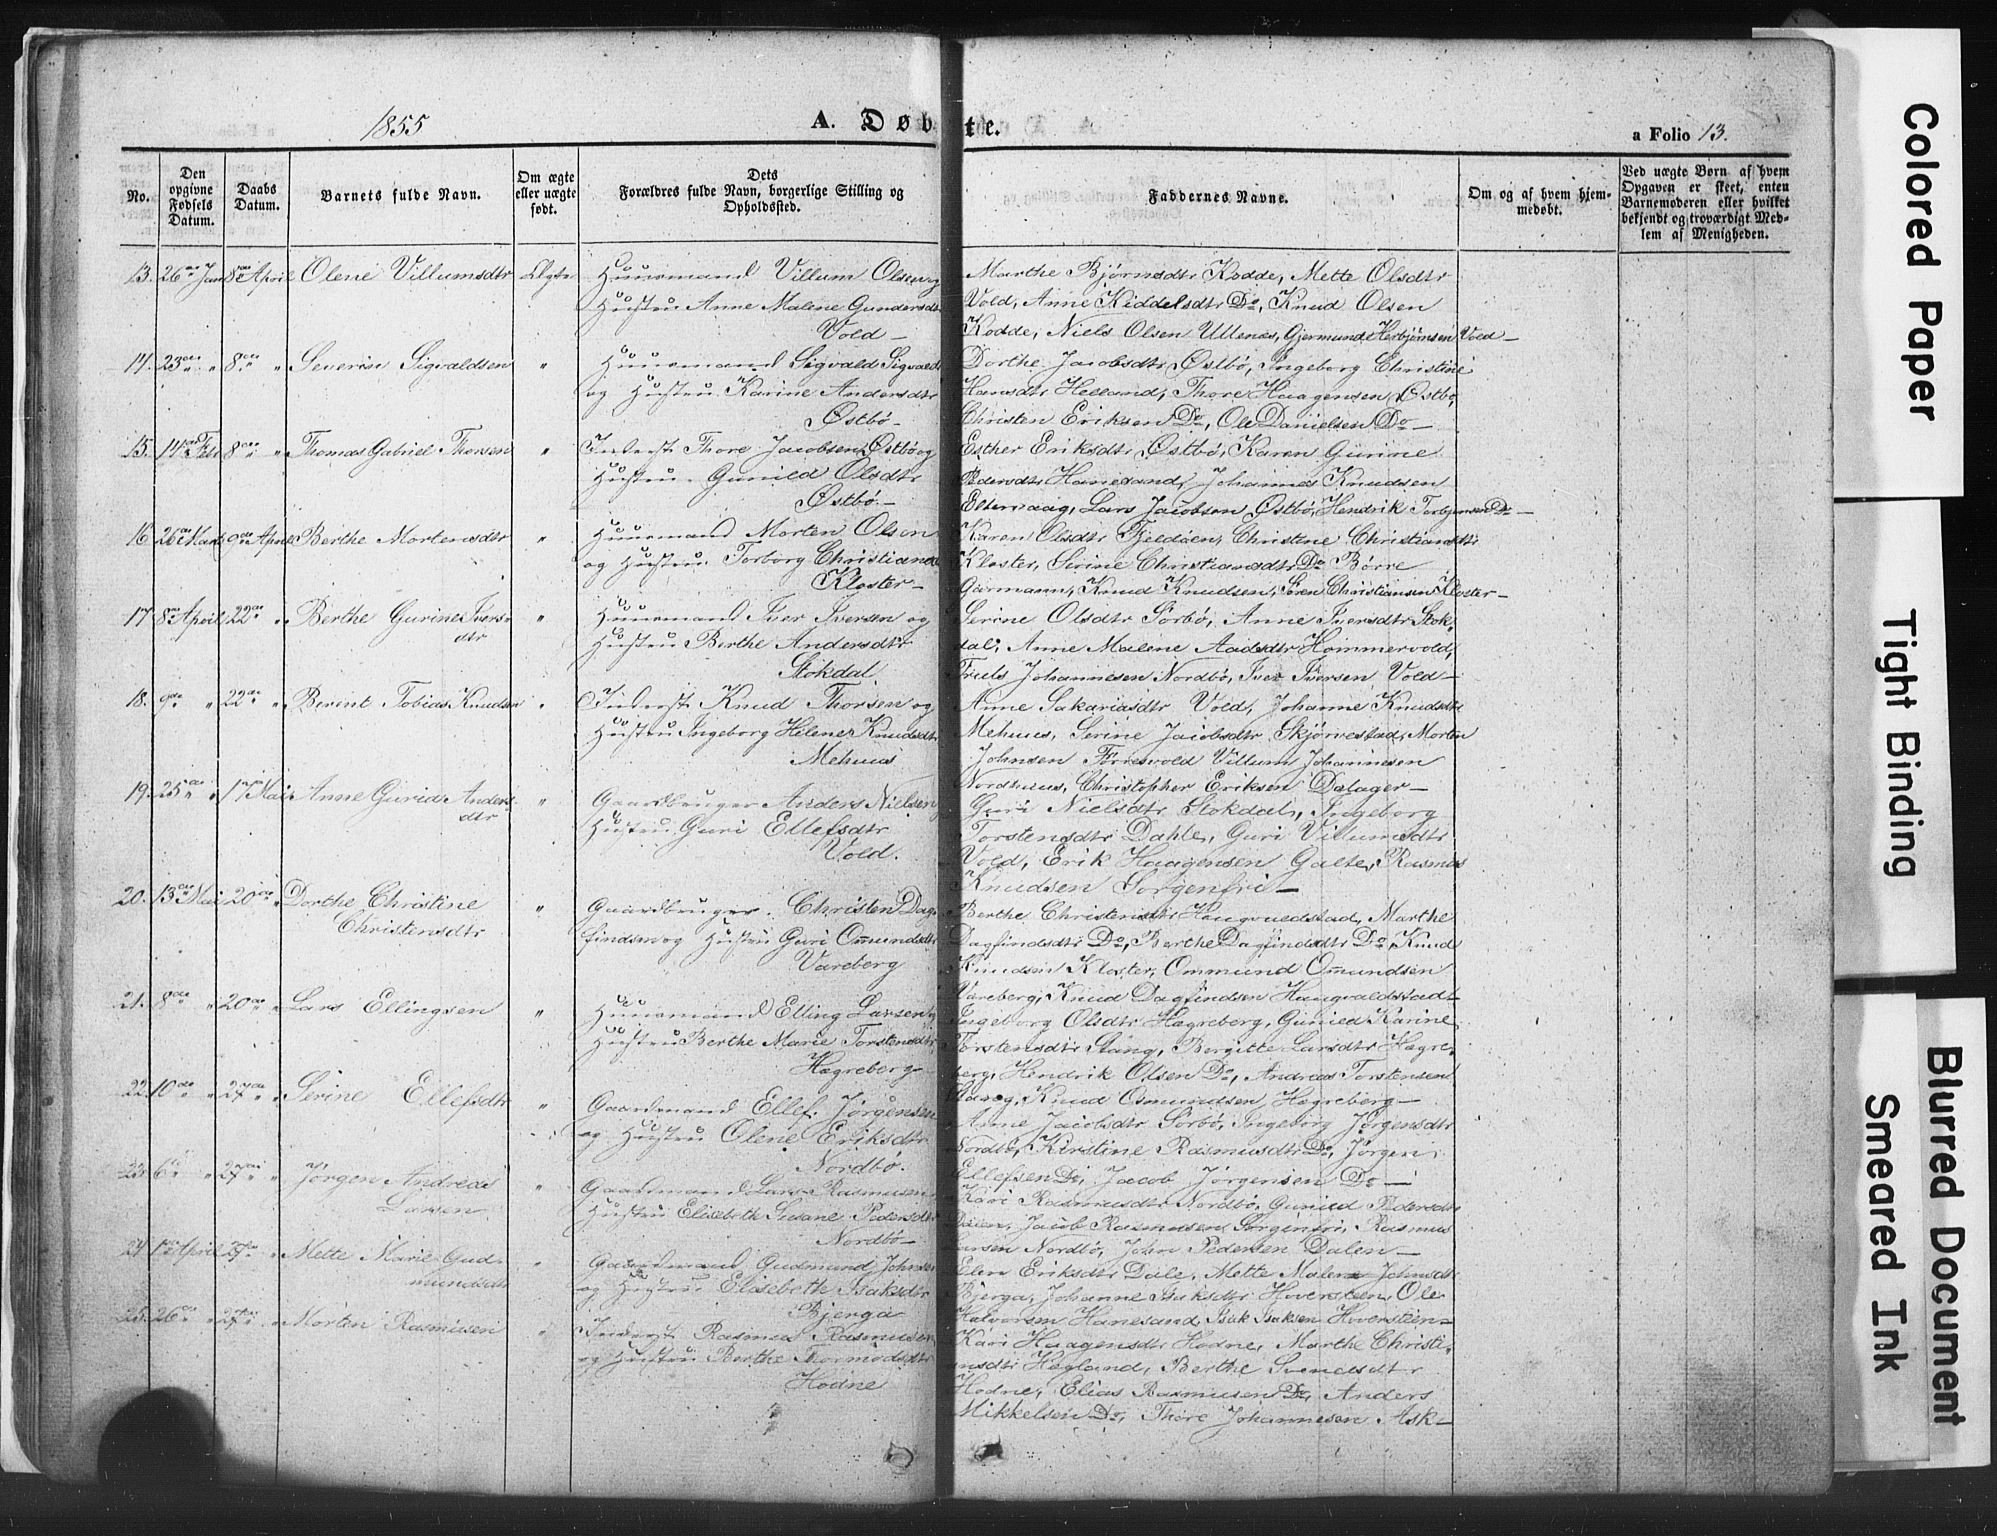 1855
A. Døbte.
a Folio 13.
No.
Den opgivne Fødsels Datum.
Daabs Datum.
Barnets fulde Navn.
Om ægte eller uægte født.
Dets Forældres fulde Navn, borgerlige Stilling og Opholdssted.
Faddernes Navne.
Om og af hvem hjemmedøbt.
Ved uægte Børn af hvem Opgaven er skeet, enten Barnemoderen eller hvilket bekjendt og troværdigt Medlem af Menigheden.
13. 26de Jan 8de April Olene Villumsdtr Ægte Huusmand Villum Olsen og
Hustru Anne Malene Gundersdtr
Vold —
Marthe Bjørnsdtr Kodde, Mette Olsdtr
Vold, Anne Kiddelsdtr Do, Knud Olsen
Kodde, Niels Olsen Ullenes, Gjermund Herbjørnsen Vold —
14. 23de " 8de " Severin Sigvaldsen " Huusmand Sigvald Sigvalds
og Hustru Karine Andersdtr
Østbø —
Dorthe Jacobsdtr Østbø, Ingeborg Christine
Hansdtr Helland, Thore Haagensen Østbø,
Christen Eriksen Do, Ole Danielsen Do —
15. 14de Feb 8de " Thomas Gabriel Thorsen " Inderst Thore Jacobsen Østbø og
Hustru Gunild Olsdtr
Østbø. —
Esther Eriksdtr Østbø, Karen Gurine
Pedersdtr Hanesand, Johannes Knudsen
Eltervaag, Lars Jacobsen Østbø, Hendrik Torbjørnsen Do —
16 26de Marts 9de April Berthe Mortensdtr " Huusmand Morten Olsen
og Hustru Torborg Christians
Kloster —
Karen Olsdtr Fjeldøen, Christine Christiansdtr
Kloster, Serine Christiansdtr Do Børre
Gjermann, Knud Knudsen, Søren Christiansen Kloster —
17 8de April 22de " Berthe Gurine Ivers-
dtr
" Huusmand Iver Iversen og
Hustru Berthe Andersdtr
Stokdal
Serine Olsdtr Sørbø, Anne Iversdtr Stok-
dal, Anne Malene Aadsdtr Hommervold,
Truls Johannesen Nordbø, Iver Iversen Vold —
18. 9de " 22de " Berent Tobias Knudsen " Inderst Knud Thorsen og
Hustru Ingeborg Helene Knudsdtr
Mehuus
Anne Sakariasdtr Vold, Johanne Knudsdtr
Mehuus, Serine Jacobsdtr Skjørvestad, Morten
Johnsen Villum Johannesen
Nordhuus, Christopher Eriksen Dalager —
19. 25de " 17 Mai Anne Gurid Anders-
dtr
" Gaardbruger Anders Nielsen
Hustru Guri Ellefsdtr
Vold.
Guri Nielsdtr Stokdal, Ingeborg
Torstensdtr Dahle, Guri Villumsdtr
Vold, Erik Haagensen Galte, Rasmus
Knudsen Sorgenfri —
20. 13de Mai 20de " Dorthe Christine
Christensdtr
" Gaardbruger Christen Dag-
findsen og Hustru Guri Omundsdtr
Vareberg
Berthe Christensdtr Marthe
Dagfindsdtr Do, Berthe Dagfindsdtr Do Knud
Knudsen Kloster, Ommund Omundsen
Vareberg, Knud Dagfindsen Haugvaldstad —
21. 8de " 20de " Lars Ellingsen " Huusmand Elling Larsen og
Hustru Berthe Marie Torstensdtr
Hægreberg —
Ingeborg Olsdtr Hægreberg, Gunild Karine
Torstensdtr Stang, Bergitte Larsdtr Hægre-
berg, Hendrik Olsen Do, Andreas Torstensen
Stang, Knud Osmundsen Hægreberg —
22. 10de " 27de " Serine Ellefsdtr " Gaardmand Ellef Jørgensen
og Hustru Olene Eriksdtr
Nordbø.
Anne Jacobsdtr Sørbø, Ingeborg Jørgensdtr
Nordbø, Kirstine Rasmusdtr Do, Jørgen
Ellefsen Do, Jacob Jørgensen Do —
23. 6de " 27de " Jørgen Andreas
Larsen
" Gaardmand Lars Rasmusen
Hustru Elisebeth Susane Pedersdtr
Nordbø —
Kari Rasmusdtr Nordbø, Gunild Pedersdtr
Dalen, Jacob Rasmusen Sorgenfri, Rasmus
Larsen Nordbø, John Pedersen Dalen —
24 1de April 27de " Mette Marie Gud-
mundsdtr
" Gaardmand Gudmund Johnsen
og Hustru Elisebeth Isaksdtr
Bjerga
Elen Eriksdtr Dale, Mette Malene Johnsdtr
Bjerga, Johanne Isaksdtr Hoversteen, Ole
Halvorsen Hanesand, Isak Isaksen Hoversteen —
25. 26de " 27de " Morten Rasmusen " Inderst Rasmus Rasmusen
og Hustru Berthe Thormodsdtr
Hodne
Kari Haagensdtr Hodne, Marthe Christi-
ansdtr Hægland, Berthe Svendsdtr
Hodne, Elias Rasmusen Do, Anders
Mikkelsen Do, Thore Johannesen Ask —
Colored Paper
Tight Binding
Blurred Document
Smeared Ink